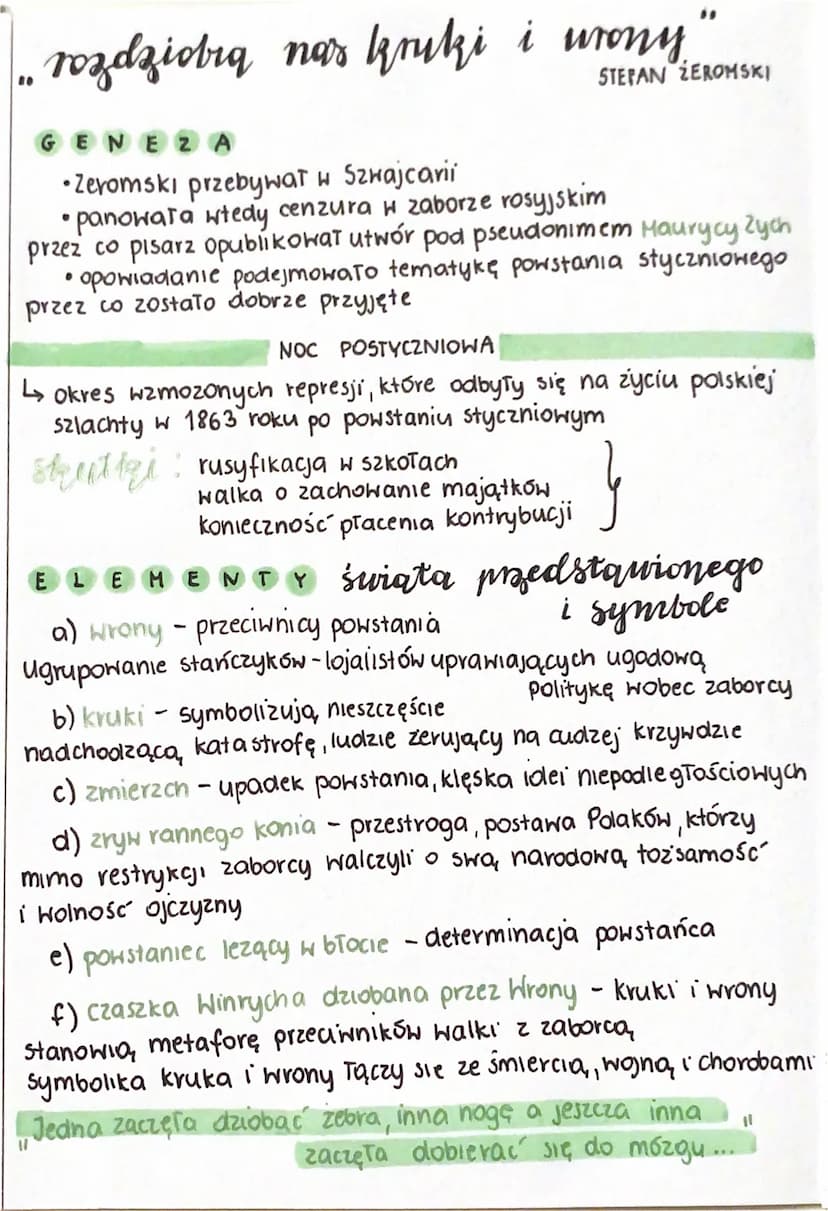 „rozdziobią nas kruki i wrony"
STEFAN ŻEROMSKI
GENEZA
•Żeromski przebywał w Szwajcarii
•panowała wtedy cenzura w zaborze rosyjskim
przez co pisarz opublikował utwór pod pseudonimem Maurycy Zych
•opowiadanie podejmowało tematykę powstania styczniowego
przez co zostało dobrze przyjęte
NOC POSTYCZNIOWA
↳ okres wzmożonych represji, które odbyły się na życiu polskiej
szlachty w 1863 roku po powstaniu styczniowym
skutki: rusyfikacja w szkołach
walka o zachowanie majątków
konieczność płacenia kontrybucji
ELEMENTY świata przedstawionego
i symbole
a) wrony - przeciwnicy powstania
Ugrupowanie stańczyków - lojalistów uprawiających ugodową
politykę wobec zaborcy
b) kruki - symbolizują nieszczęście
nadchodzącą katastrofę, ludzie żerujący na cudzej krzywdzie
c) zmierzch - upadek powstania, klęska idei niepodległościowych
d) zryw rannego konia - przestroga, postawa Polaków, którzy
mimo restrykcji zaborcy walczyli o swą narodową tożsamość
i wolność ojczyzny
e) powstaniec leżący w błocie - determinacja powstańca
f) czaszka Winrycha dziobana przez wrony - kruki i wrony
stanowią metaforę przeciwników walki z zaborcą
symbolika kruka i wrony łączy się ze śmiercią, wojną i chorobami
„Jedna zaczęła dziobać żebra, inna nogę a jeszcza inna
zaczęła dobierać się do mózgu..."